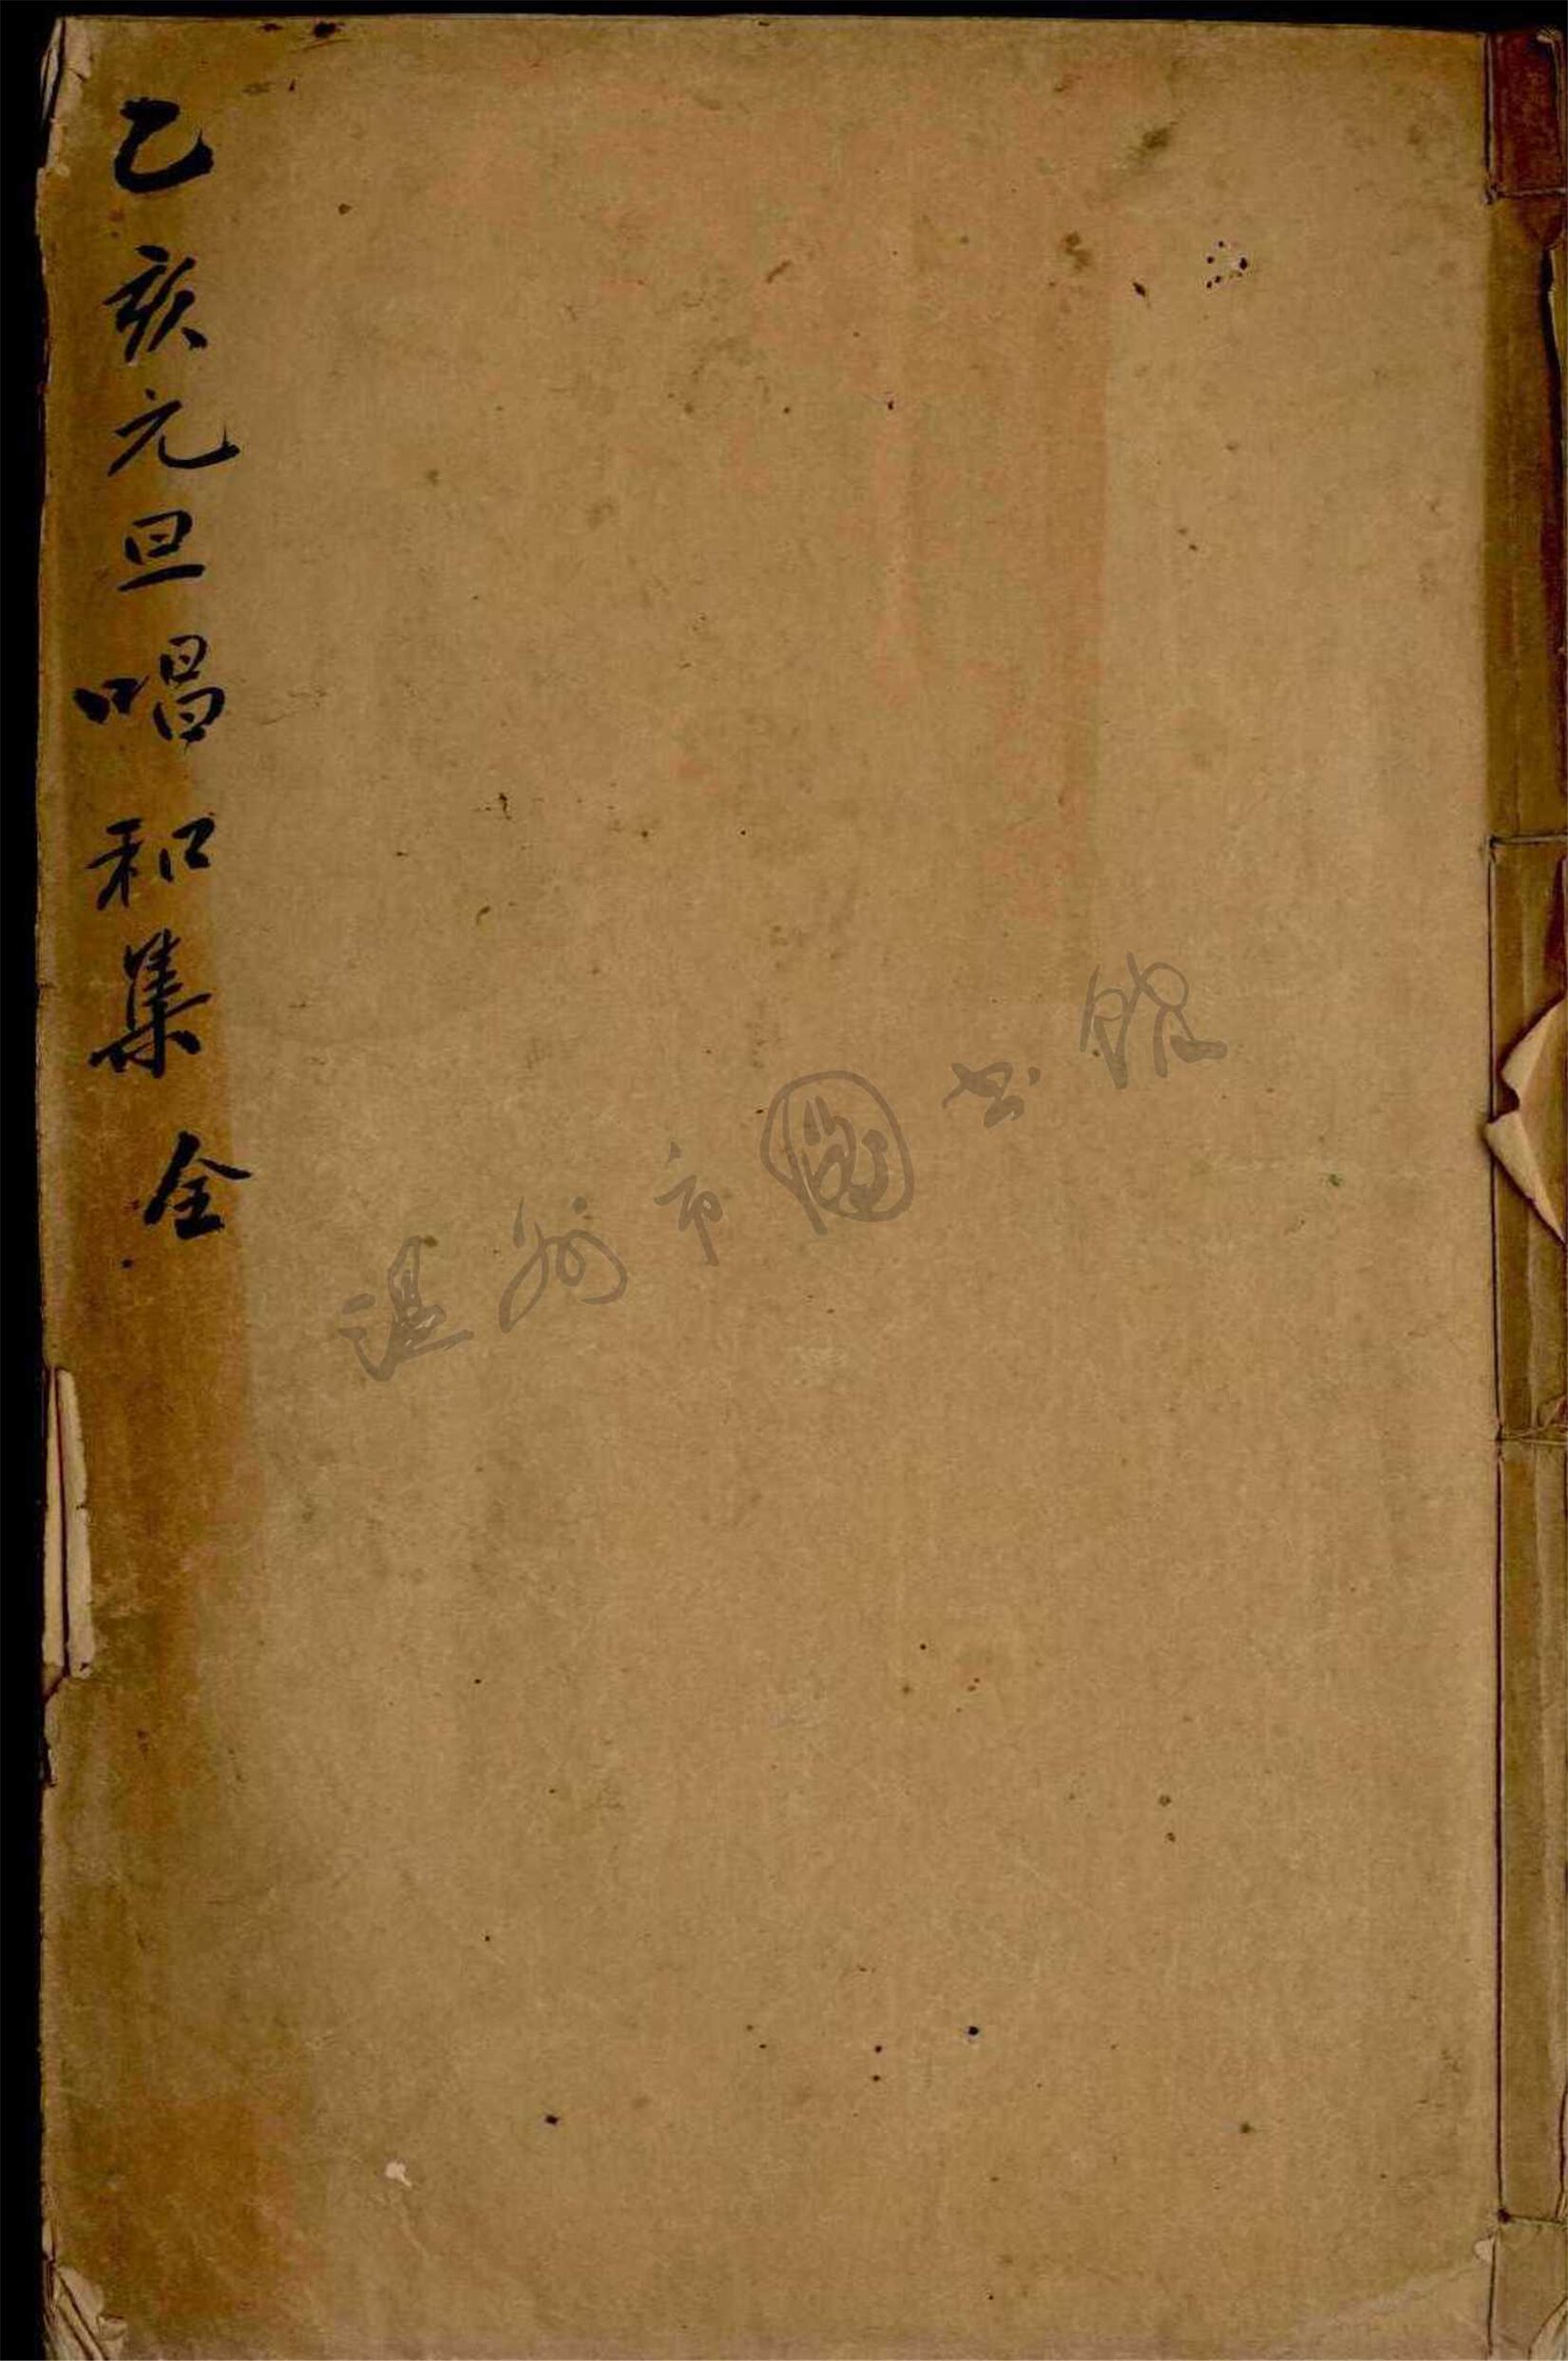 乙亥元旦唱和集 全
温州市圖书馆